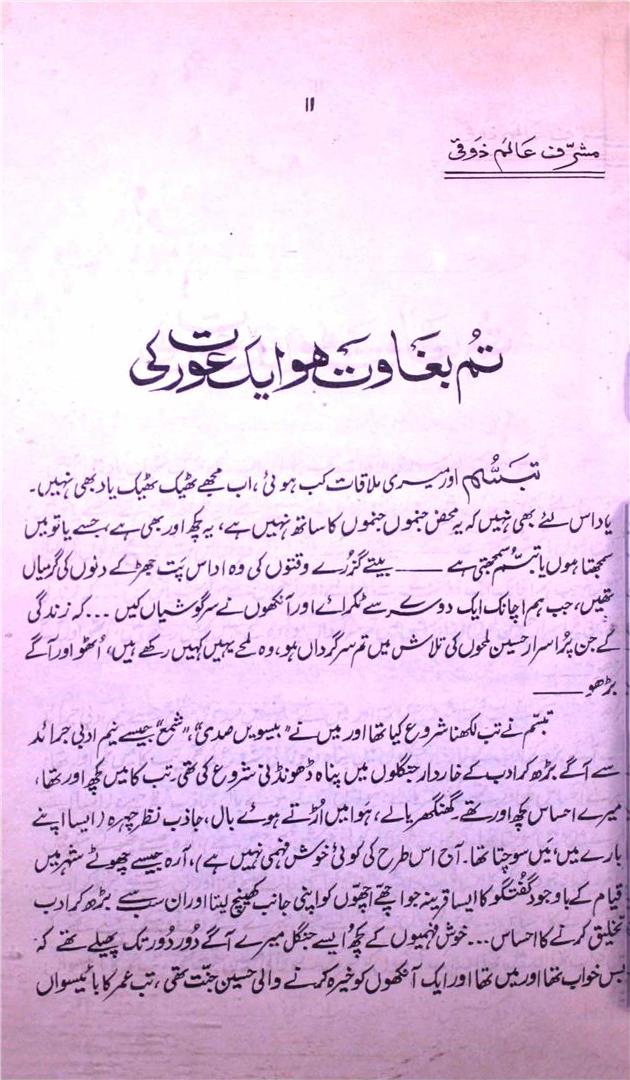 ۱۱
مشرّف عالم ذوقی
تُم بغاوت ہو ایک عورت کی
تبسُّم اور میری ملاقات کب ہوئی، اب مجھے ٹھیک ٹھیک یاد بھی نہیں۔
یاد اس لئے بھی نہیں کہ یہ محض جنموں جنموں کا ساتھ نہیں ہے، یہ کچھ اور بھی ہے، جسے یا تو میں
سمجھتا ہوں یا تبسّم سمجھتی ہے —— بیتے گزُرے وقتوں کی وہ اداس پَت جھڑ کے دنوں کی گرمیاں
تھیں، جب ہم اچانک ایک دوسرے سے ٹکرائے اور آنکھوں نے سرگوشیاں کیں ... کہ زندگی
کے جن پُراسرار حسین لمحوں کی تلاش میں تم سرگرداں ہو، وہ لمحے یہیں کہیں رکھے ہیں، اُٹھو اور آگے
بڑھو ——
تبسّم نے تب لکھنا شروع کیا تھا اور میں نے "بیسویں صدی"، "شمع" جیسے نیم ادبی جرائد
سے آگے بڑھ کر ادب کے خاردار جنگلوں میں پناہ ڈھونڈنی شروع کی تھی۔ تب کا میں کچھ اور تھا،
میرے احساس کچھ اور تھے۔ گھنگھریالے، ہوا میں اُڑتے ہوئے بال، جاذب نظر چہرہ (ایسا اپنے
بارے میں، میں سوچتا تھا۔ آج اس طرح کی کوئی خوش فہمی نہیں ہے)، آرہ جیسے چھوٹے شہر میں
قیام کے باوجود گفتگو کا ایسا قرینہ جو اچھے اچھّوں کو اپنی جانب کھینچ لیتا اور ان سب سے بڑھ کر ادب
تخلیق کرنے کا احساس ... خوش فہمیوں کے کچھ ایسے جنگل میرے آگے دُور دُور تک پھیلے تھے کہ
بس خواب تھا اور میں تھا اور ایک آنکھوں کو خیرہ کرنے والی حسین جنّت تھی، تب عمر کا بائیسواں